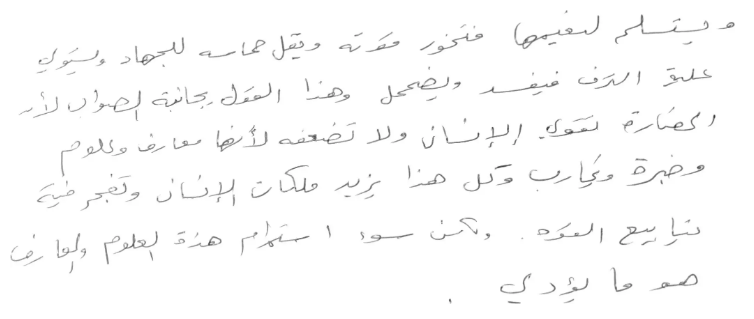 ويستسلم لنعيمها فتخور قوته ويقل حماسه للجهاد ويستولي
عليه الترف فيفسد ويضمحل وهذا القول بجانبه الصواب لأن
الحضارة تقوي الإنسان ولا تضعفه لأنها معارف وعلوم
وخبرة وتجارب وكل هذا يزيد ملكات الإنسان وتفجر فيه
ينابيع القوة. ولكن سوء استخدام هذه العلوم والمعارف
هو ما يؤدي .